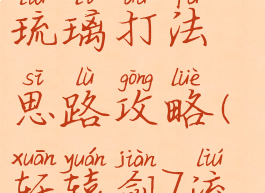 琉璃打法
sī lù gōng lüè
思路攻略(
xuān yuán jiàn liú
轩辕剑7流